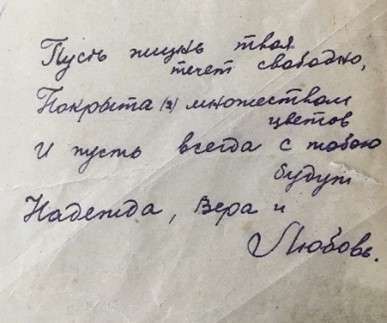 Пусть жизнь твоя
течет свободно,
Покрыта (а) множеством
цветов
И пусть всегда с тобою
будут
Надежда, Вера и
Любовь.